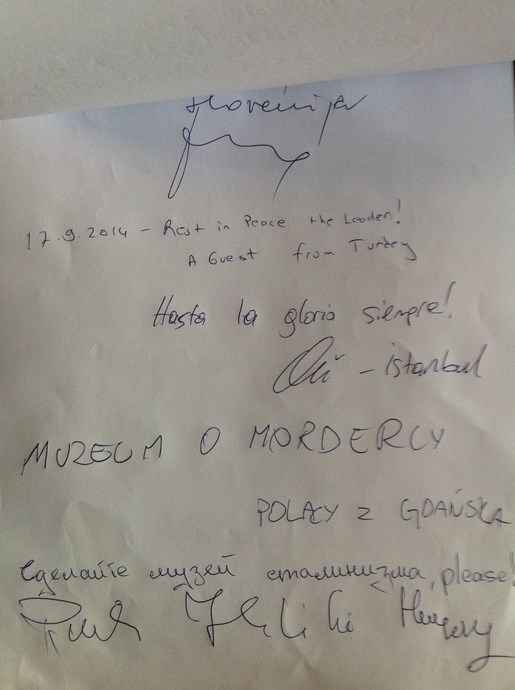 Slovenija
17.9.2014 - Rest in Peace the Leader!
A Guest from Turkey
Hasta la gloria siempre!
- istanbul
MUZEUM O MORDERCY
POLACY Z GDAŃSKA
Сделайте музей сталинизма, please!
Hungary